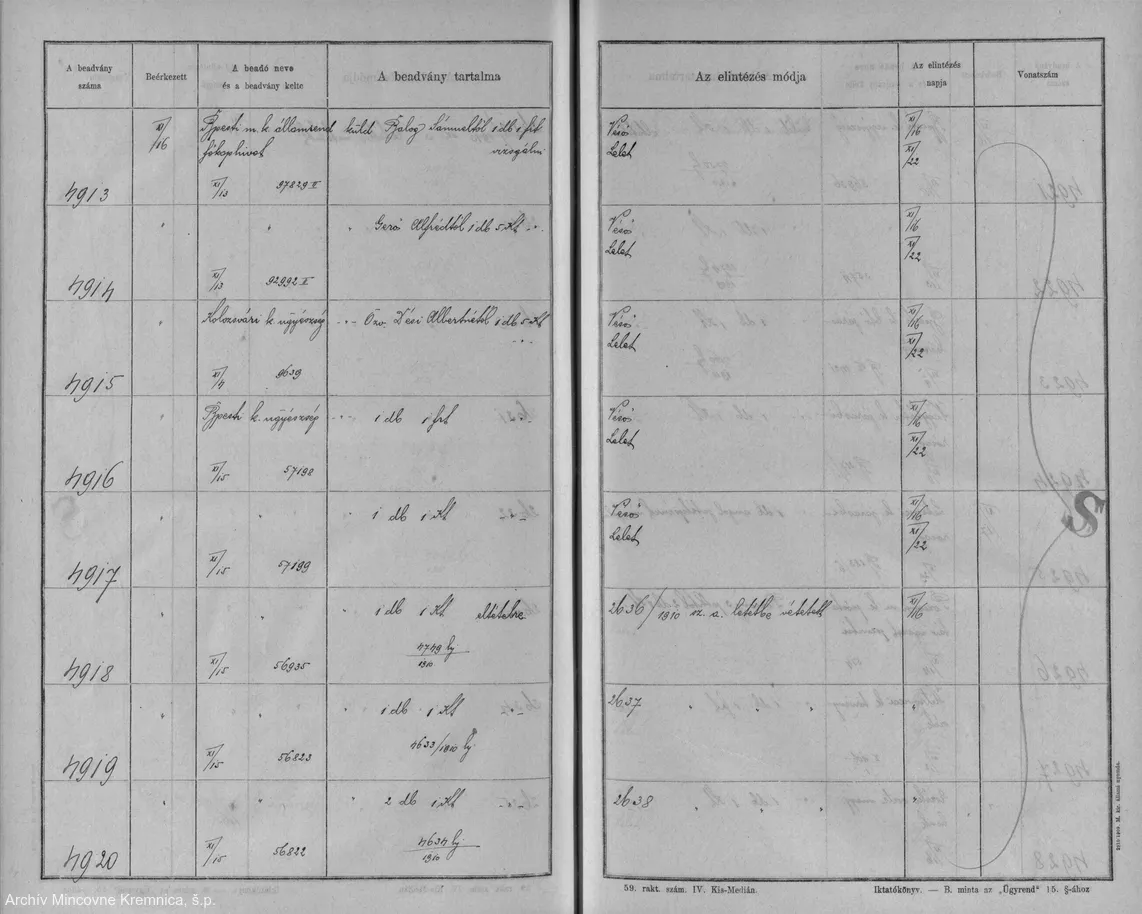 A beadvány száma
Beérkezett
A beadó neve és a beadvány kelte
A beadvány tartalma
Az elintézés módja
Az elintézés napja
Vonatszám
XI/16
Bpesti m. k. államrend
főkaphivat
küld Balog Sámueltől 1 db 1 frt
vizsgálni
Véső
Lelet
XI/16
XI/22
4913
XI/13
97829 II
" " " Gerő Alfrédtól 1 db 5 Kt - " -
Véső
Lelet
XI/16
XI/22
4914
XI/13
92992 II
Kolozsvári k. ügyészség
- " - Özv. Dési Albertnétől 1 db 5 Kt
- " -
Véső
Lelet
XI/16
XI/22
4915
XI/4
9639
Bpesti k. ügyészség
- " - 1 db 1 frt
Véső
Lelet
XI/16
XI/22
4916
XI/15
57198
" " " 1 db 1 Kt - " -
Véső
Lelet
XI/16
XI/22
4917
XI/15
57199
" " " 1 db 1 Kt eltételre
2636/1910 sz. a. letétbe vétetett
XI/16
4749 bj
1910
4918
XI/15
56935
" " " 1 db 1 Kt - " -
2637 " " " " "
4633/1910 bj
4919
XI/15
56823
" " " 2 db 1 Kt - " -
2638 " " " " "
4634 bj
1910
4920
XI/15
56822
S
59. rakt. szám. IV. Kis-Medián.
Iktatókönyv. — B. minta az „Ügyrend" 15. §-ához
Archiv Mincovne Kremnica, š.p.